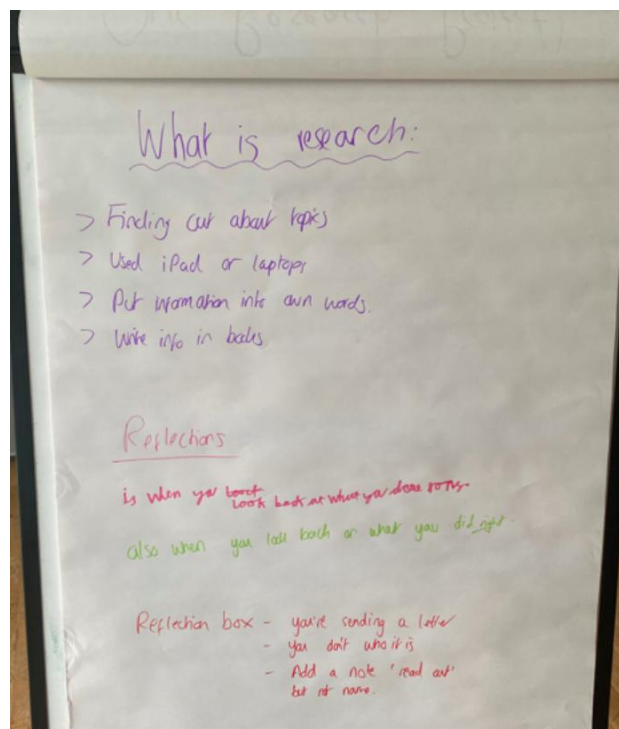 Our Research Project
What is research:
> Finding out about topics
> Used iPad or laptops
> Put information into own words.
> Write info in books
Reflections
is when you
look back at what you done
also when you look back or what you did right.
Reflection box - you're sending a letter
- you don't who it is
- Add a note 'read out'
but not name.